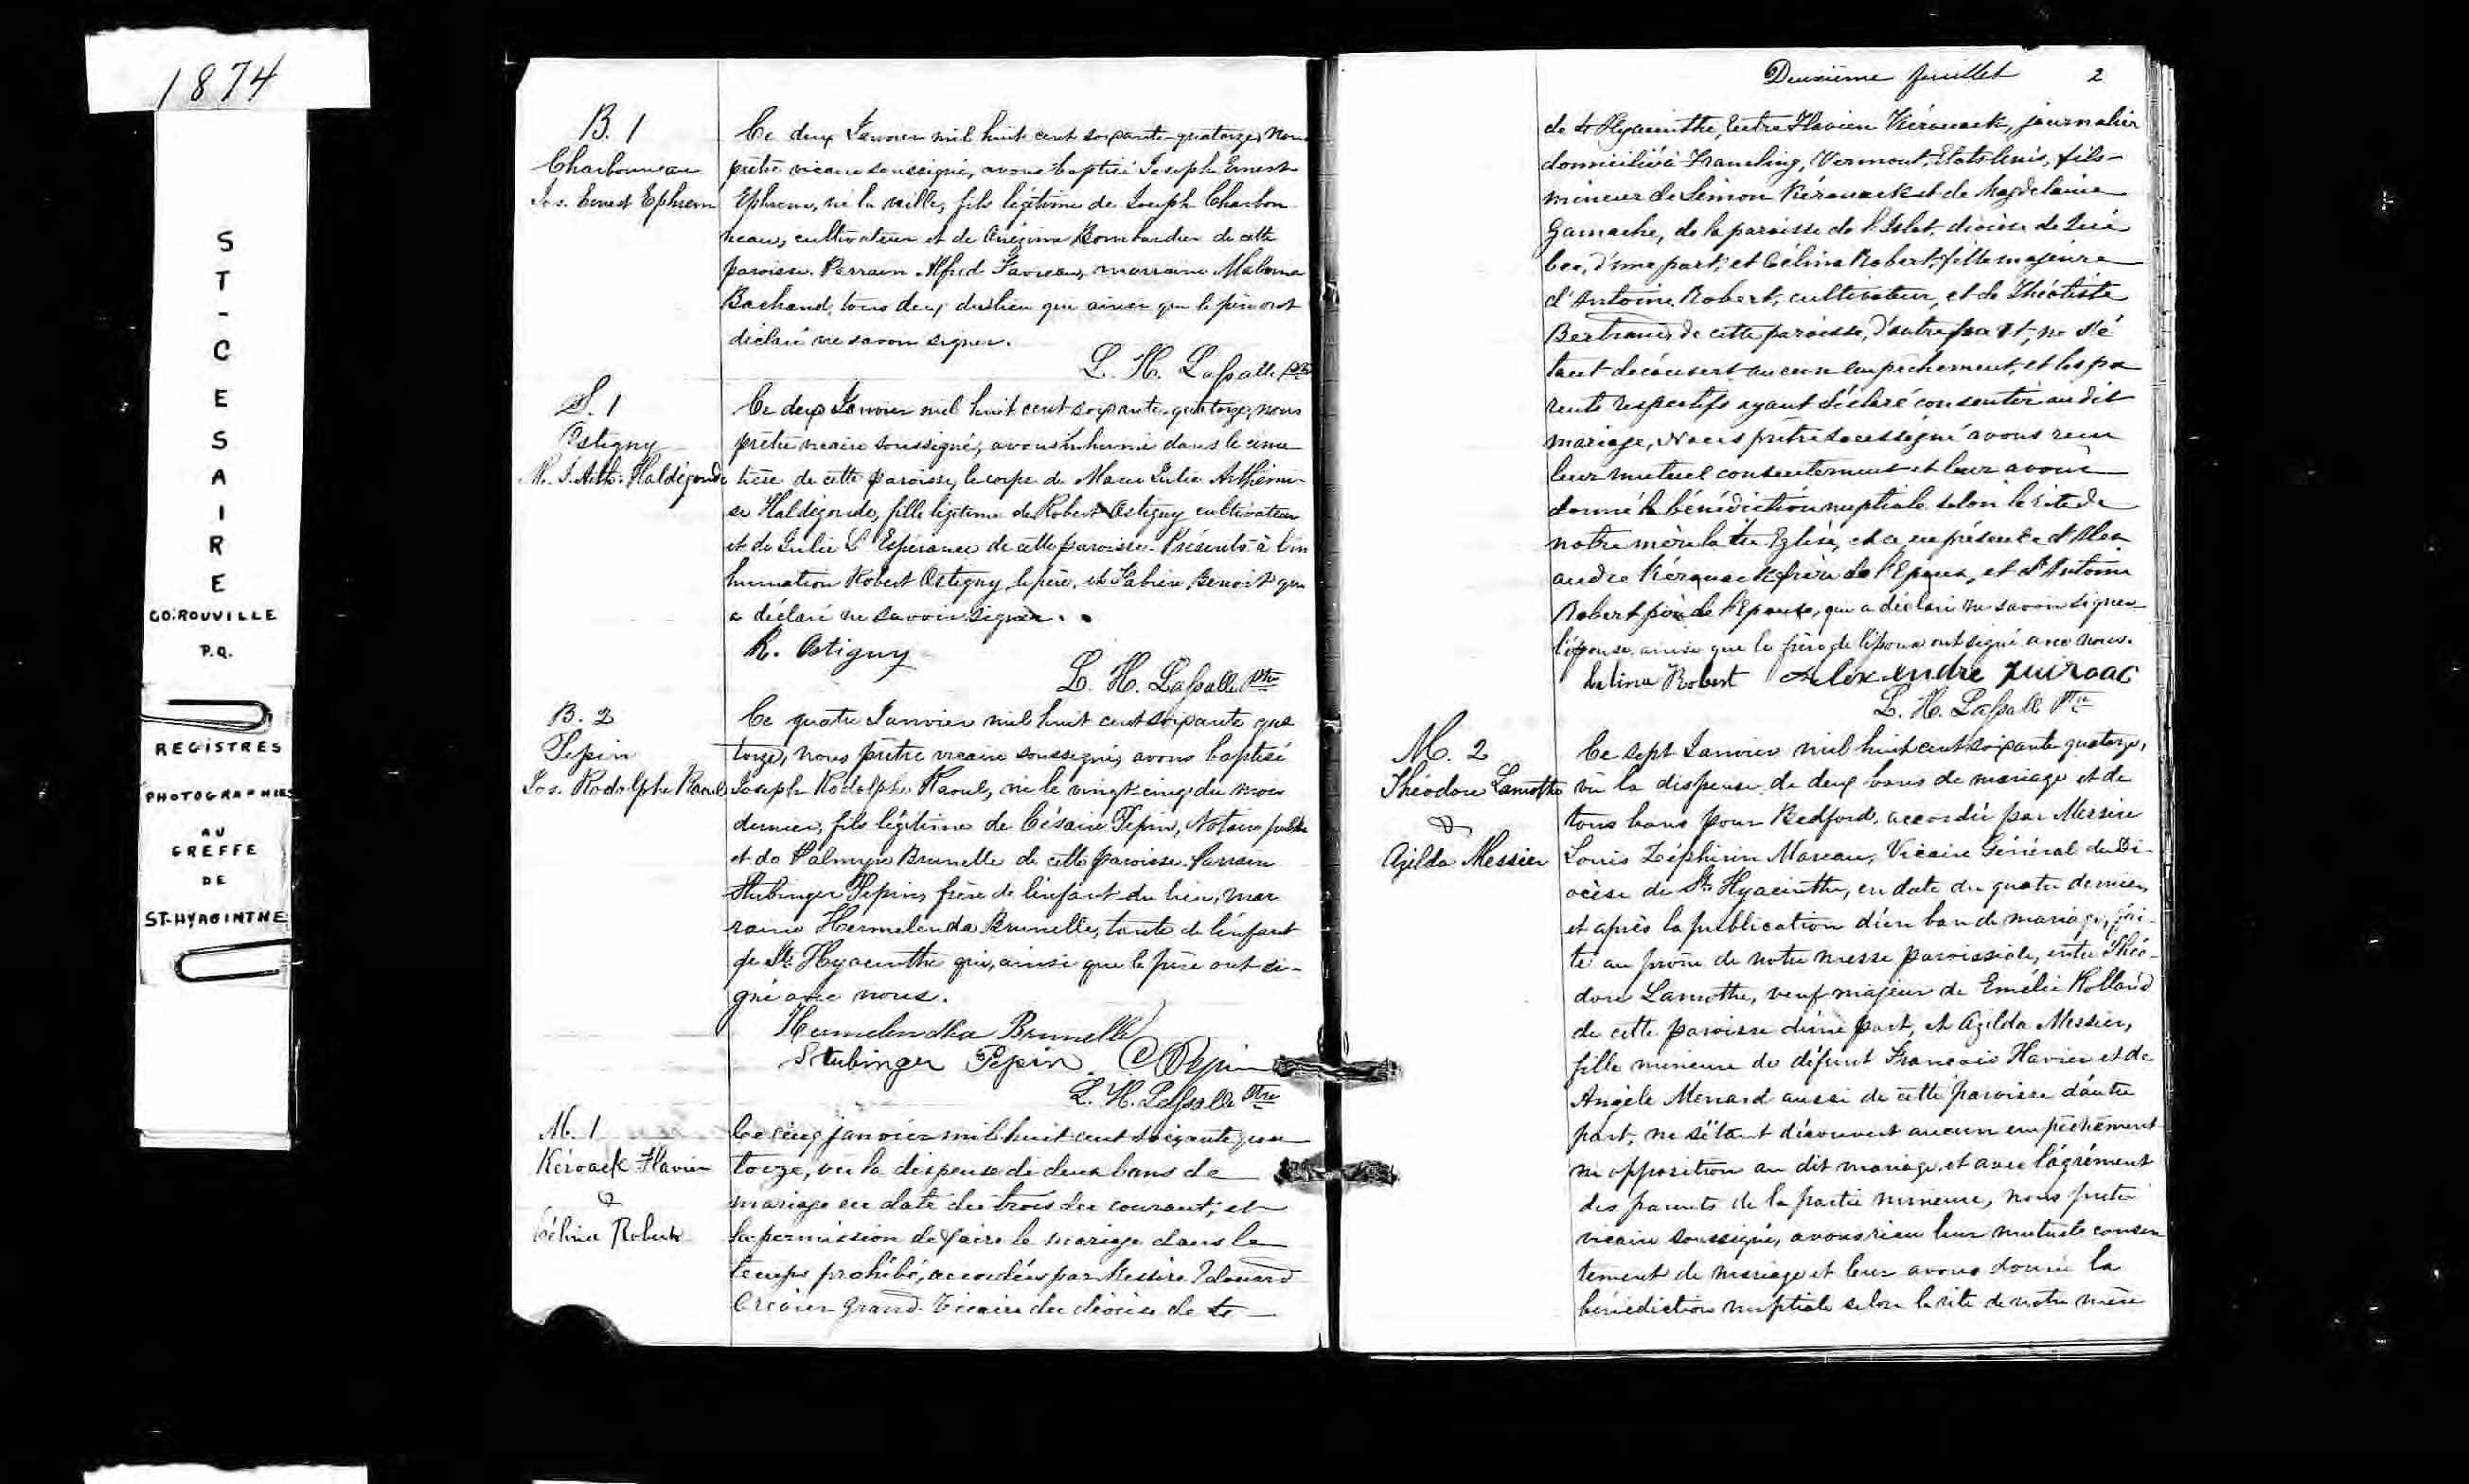 1874
S
T
-
C
E
S
A
I
R
E
CO. ROUVILLE
P.Q.
REGISTRES
PHOTOGRAPHIES
AU
GREFFE
DE
ST-HYACINTHE
B. 1
Charbonneau
Jos. Ernest Ephrem
Ce deux Janvier mil huit cent soixante-quatorze, nous
prêtre vicaire soussigné, avons baptisé Joseph Ernest
Ephrem, né la veille, fils légitime de Joseph Charbon
neau, cultivateur et de Onésime Bombardier de cette
paroisse. Parrain Alfred marraine
Bachand, tous deux du lieu qui ainsi que le père ont
déclaré ne savoir signer.
L. H. Lassalle Ptre
S. 1
Ostigny
M. J. Arth. Haldégonde
Ce deux Janvier mil huit cent soixante-quatorze, nous
prêtre vicaire soussigné, avons inhumé dans le cime
tière de cette paroisse, le corps de Marie Julie Arthémi-
se Haldégonde, fille légitime de Robert Ostigny cultivateur
et de Julie L'Espérance de cette paroisse. Présents à l'in
humation Robert Ostigny, le père, et Benoit qui
a déclaré ne savoir signer.
R. Ostigny
L. H. Lassalle Ptre
B. 2
Pepin
Jos. Rodolphe Raoul
Ce quatre Janvier mil huit cent soixante qua
torze, nous prêtre vicaire soussigné, avons baptisé
Joseph Rodolphe Raoul, né le vingt-cinq du mois
dernier, fils légitime de Césaire Pepin, Notaire public
et de Palmyre Brunelle de cette paroisse. Parrain
Stubinger Pepin, frère de l'enfant du lieu, mar
raine Hermelenda Brunelle, tante de l'enfant
de St. Hyacinthe qui, ainsi que le père ont si-
gné avec nous.
Hermelendha Brunelle
Stubinger Pepin. C Pepin
L. H. Lassalle Ptre
M. 1
Kéroack Flavien
&
Célina Robert
Ce cinq janvier mil huit cent soixante qua
torze, vu la dispense de deux bans de
mariage en date du trois du courant, et
la permission de faire le mariage dans le
temps prohibé, accordées par Messire Edouard
Crevier Grand-Vicaire du diocèse de St
Deuxième feuillet 2
de St Hyacinthe, Entre Flavien Kérouack, journalier
domicilié à Vermont, Etats Unis, fils
mineur de Simon Kérouack et de Magdelaine
Gamache, de la paroisse de l'Islet, diocèse de Qué
bec, d'une part, et Célina Robert, fille majeure
d'Antoine Robert, cultivateur, et de Théotiste
Bertrand, de cette paroisse, d'autre part, ne s'é
tant découvert aucun empêchement, et les pa
rents respectifs ayant déclaré consentir au dit
mariage, Nous prêtre soussigné avons reçu
leur mutuel consentement et leur avons
donné la bénédiction nuptiale selon le rite de
notre mère la Ste Eglise, et ce en présence d'Alex
andre Kérouack frère de l'Epoux, et d'Antoine
Robert père de l'Epouse, qui a déclaré ne savoir signer
l'épouse, ainsi que le frère de l'époux ont signé avec nous.
Celina Robert Alexendre
L. H. Lassalle Ptre
M. 2
Théodore Lamothe
&
Azilda Messier
Ce sept Janvier mil huit cent soixante quatorze,
vu la dispense de deux bans de mariage et de
tous bans pour Bedford, accordée par Messire
Louis Zéphirin Moreau, Vicaire Général du Di-
ocèse de St. Hyacinthe, en date du quatre dernier,
et après la publication d'un ban de mariage, fai-
te au prône de notre messe paroissiale, entre Théo-
dore Lamothe, veuf majeur de Emélie Rolland
de cette paroisse d'une part, et Azilda Messier,
fille mineure de défunt François Xavier et de
Angèle Menard aussi de cette paroisse d'autre
part, ne s'étant découvert aucun empêchement
ni opposition au dit mariage, et avec l'agrément
des parents de la partie mineure, nous prêtre
vicaire soussigné, avons reçu leur mutuel consen
tement de mariage et leur avons donné la
bénédiction nuptiale selon le rite de notre mère